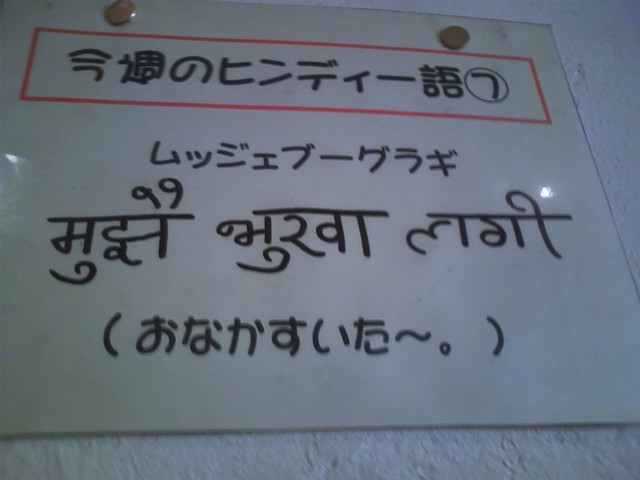 今週のヒンディー語⑦
ムッジェブーグラギ
मुझे भुखा लगी
(おなかすいた〜。)